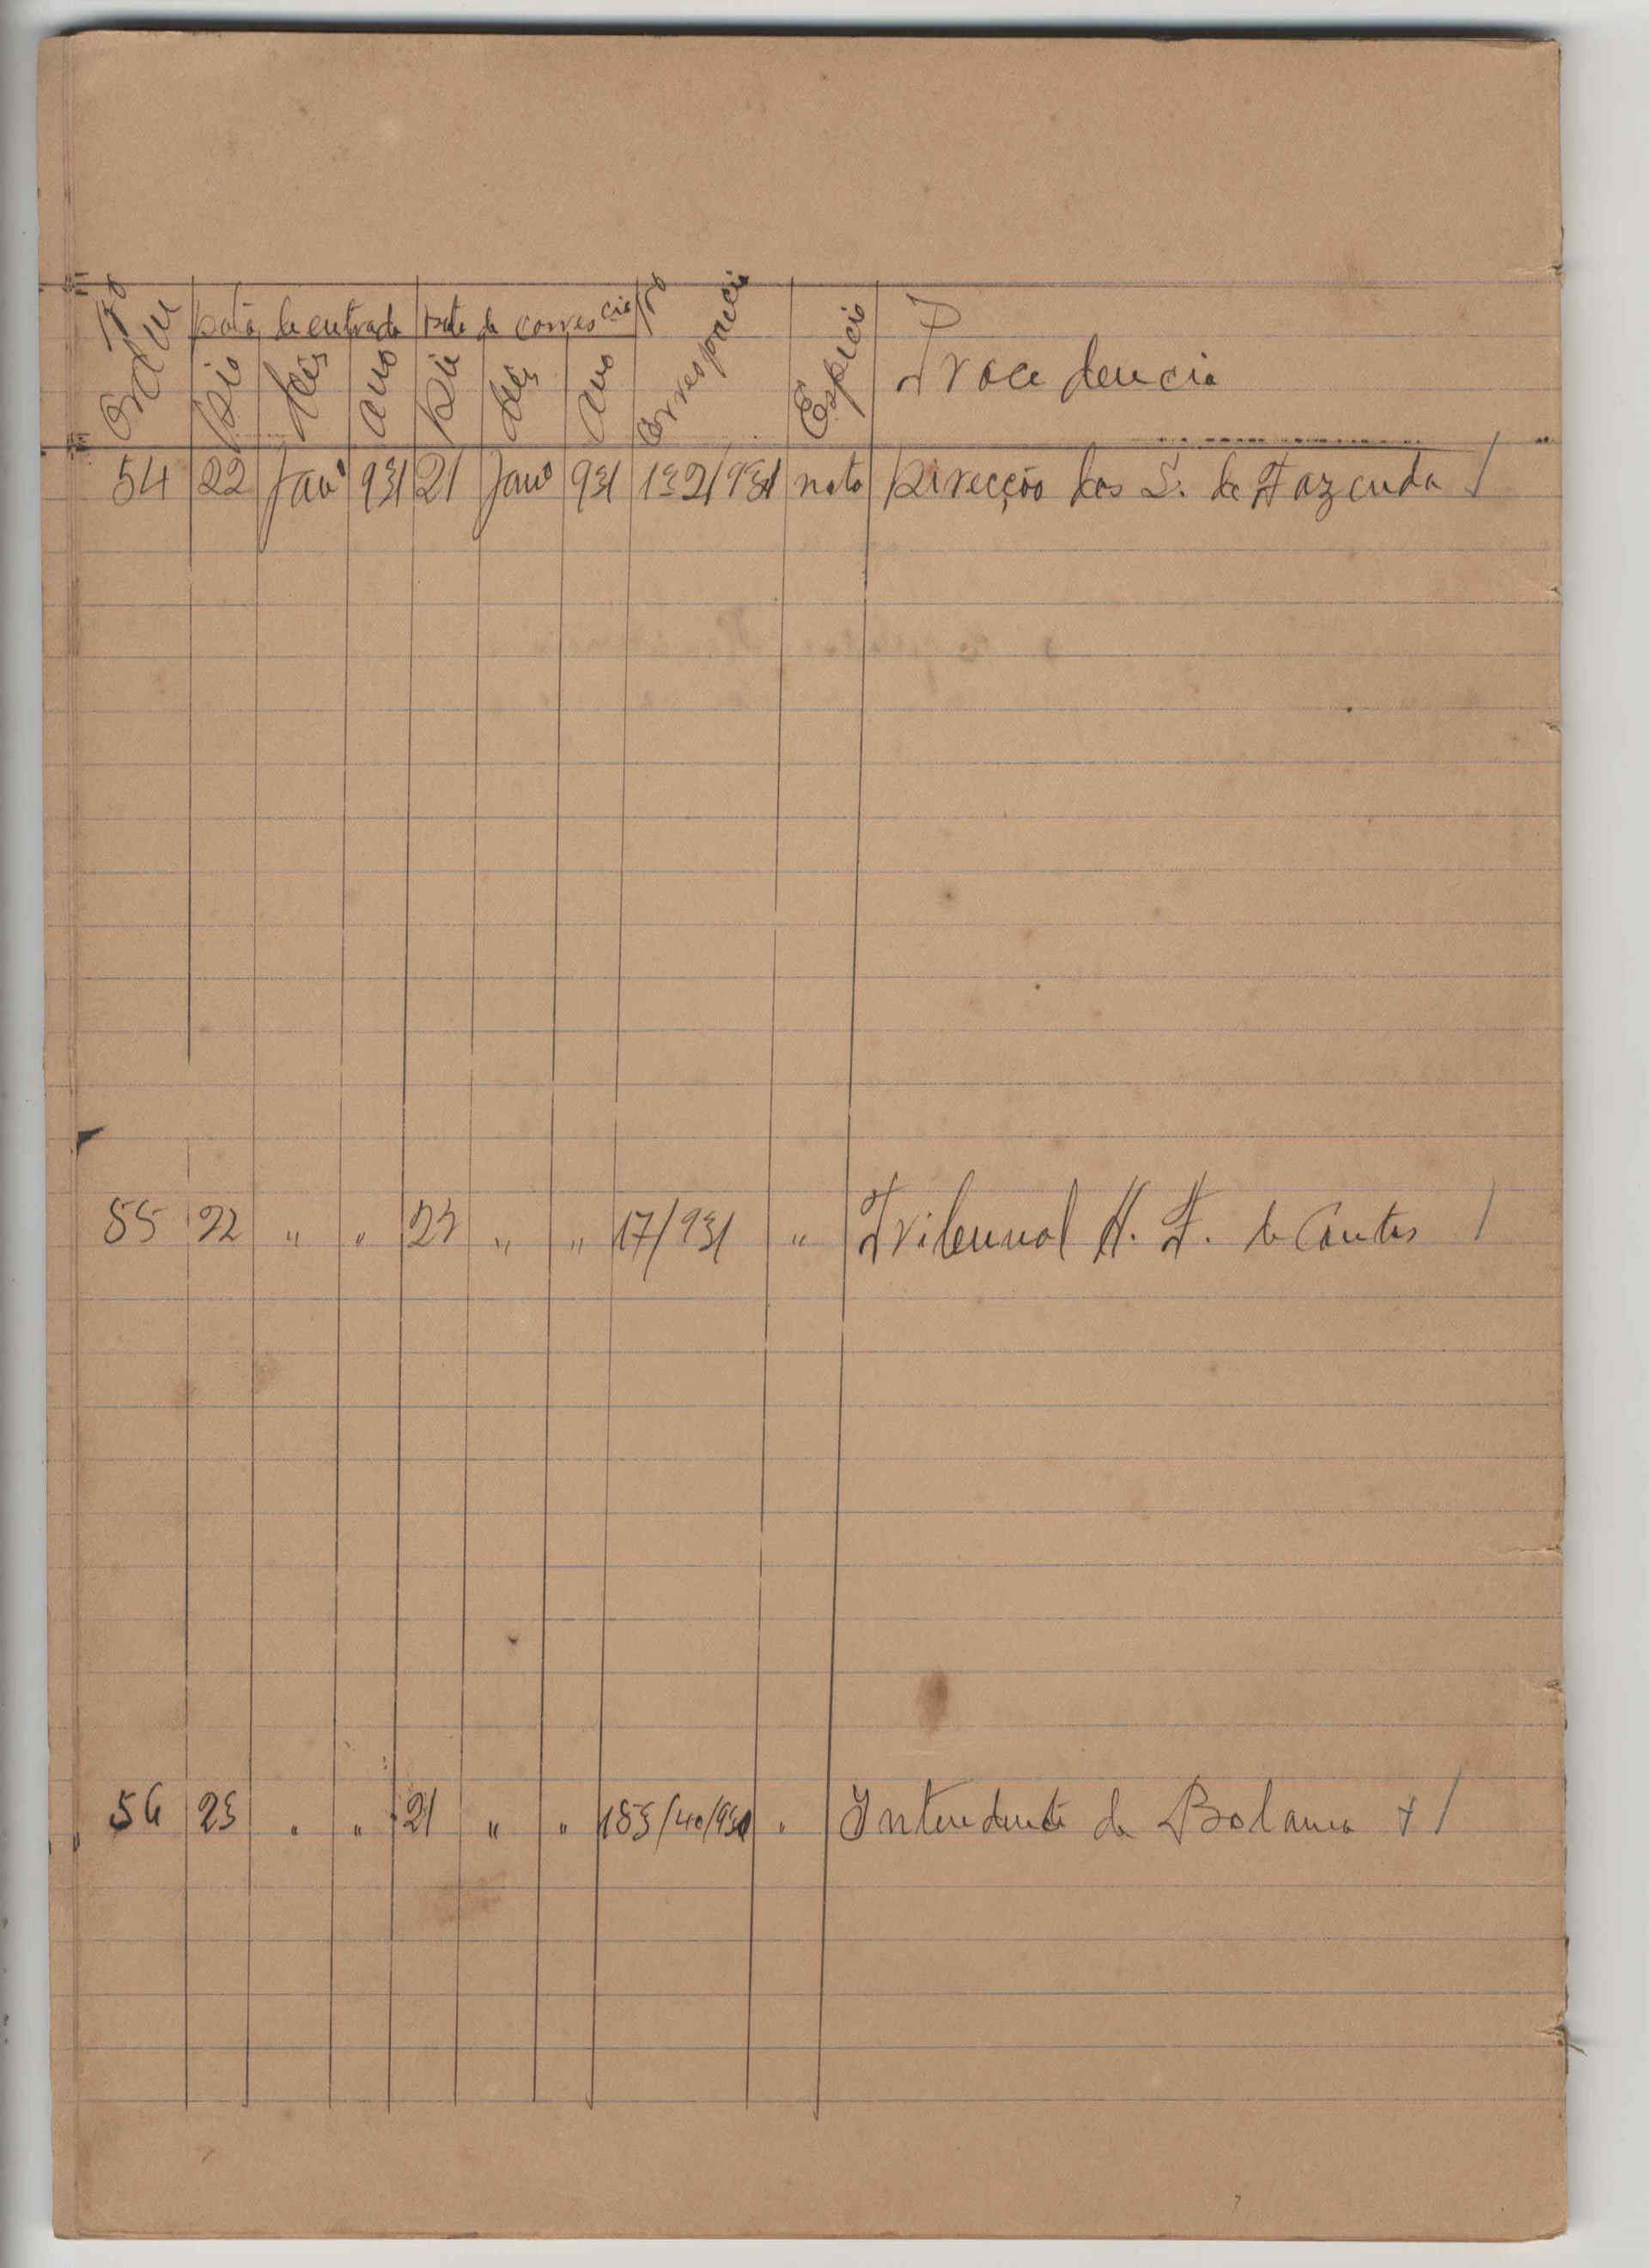 Nº Ordem Data de entrada Data de corres cia Nº Correspencia Espécie Procedencia
Dia Mês Ano Dia Mês Ano
54 22 Janº 931 21 Janº 931 132/931 nota Direcção dos S. de Fazenda /
55 22 " " 22 " " 17/931 " Tribunal A. F. de Contas /
56 23 " " 21 " " 153/40/930 " Intendente de Bolama + /